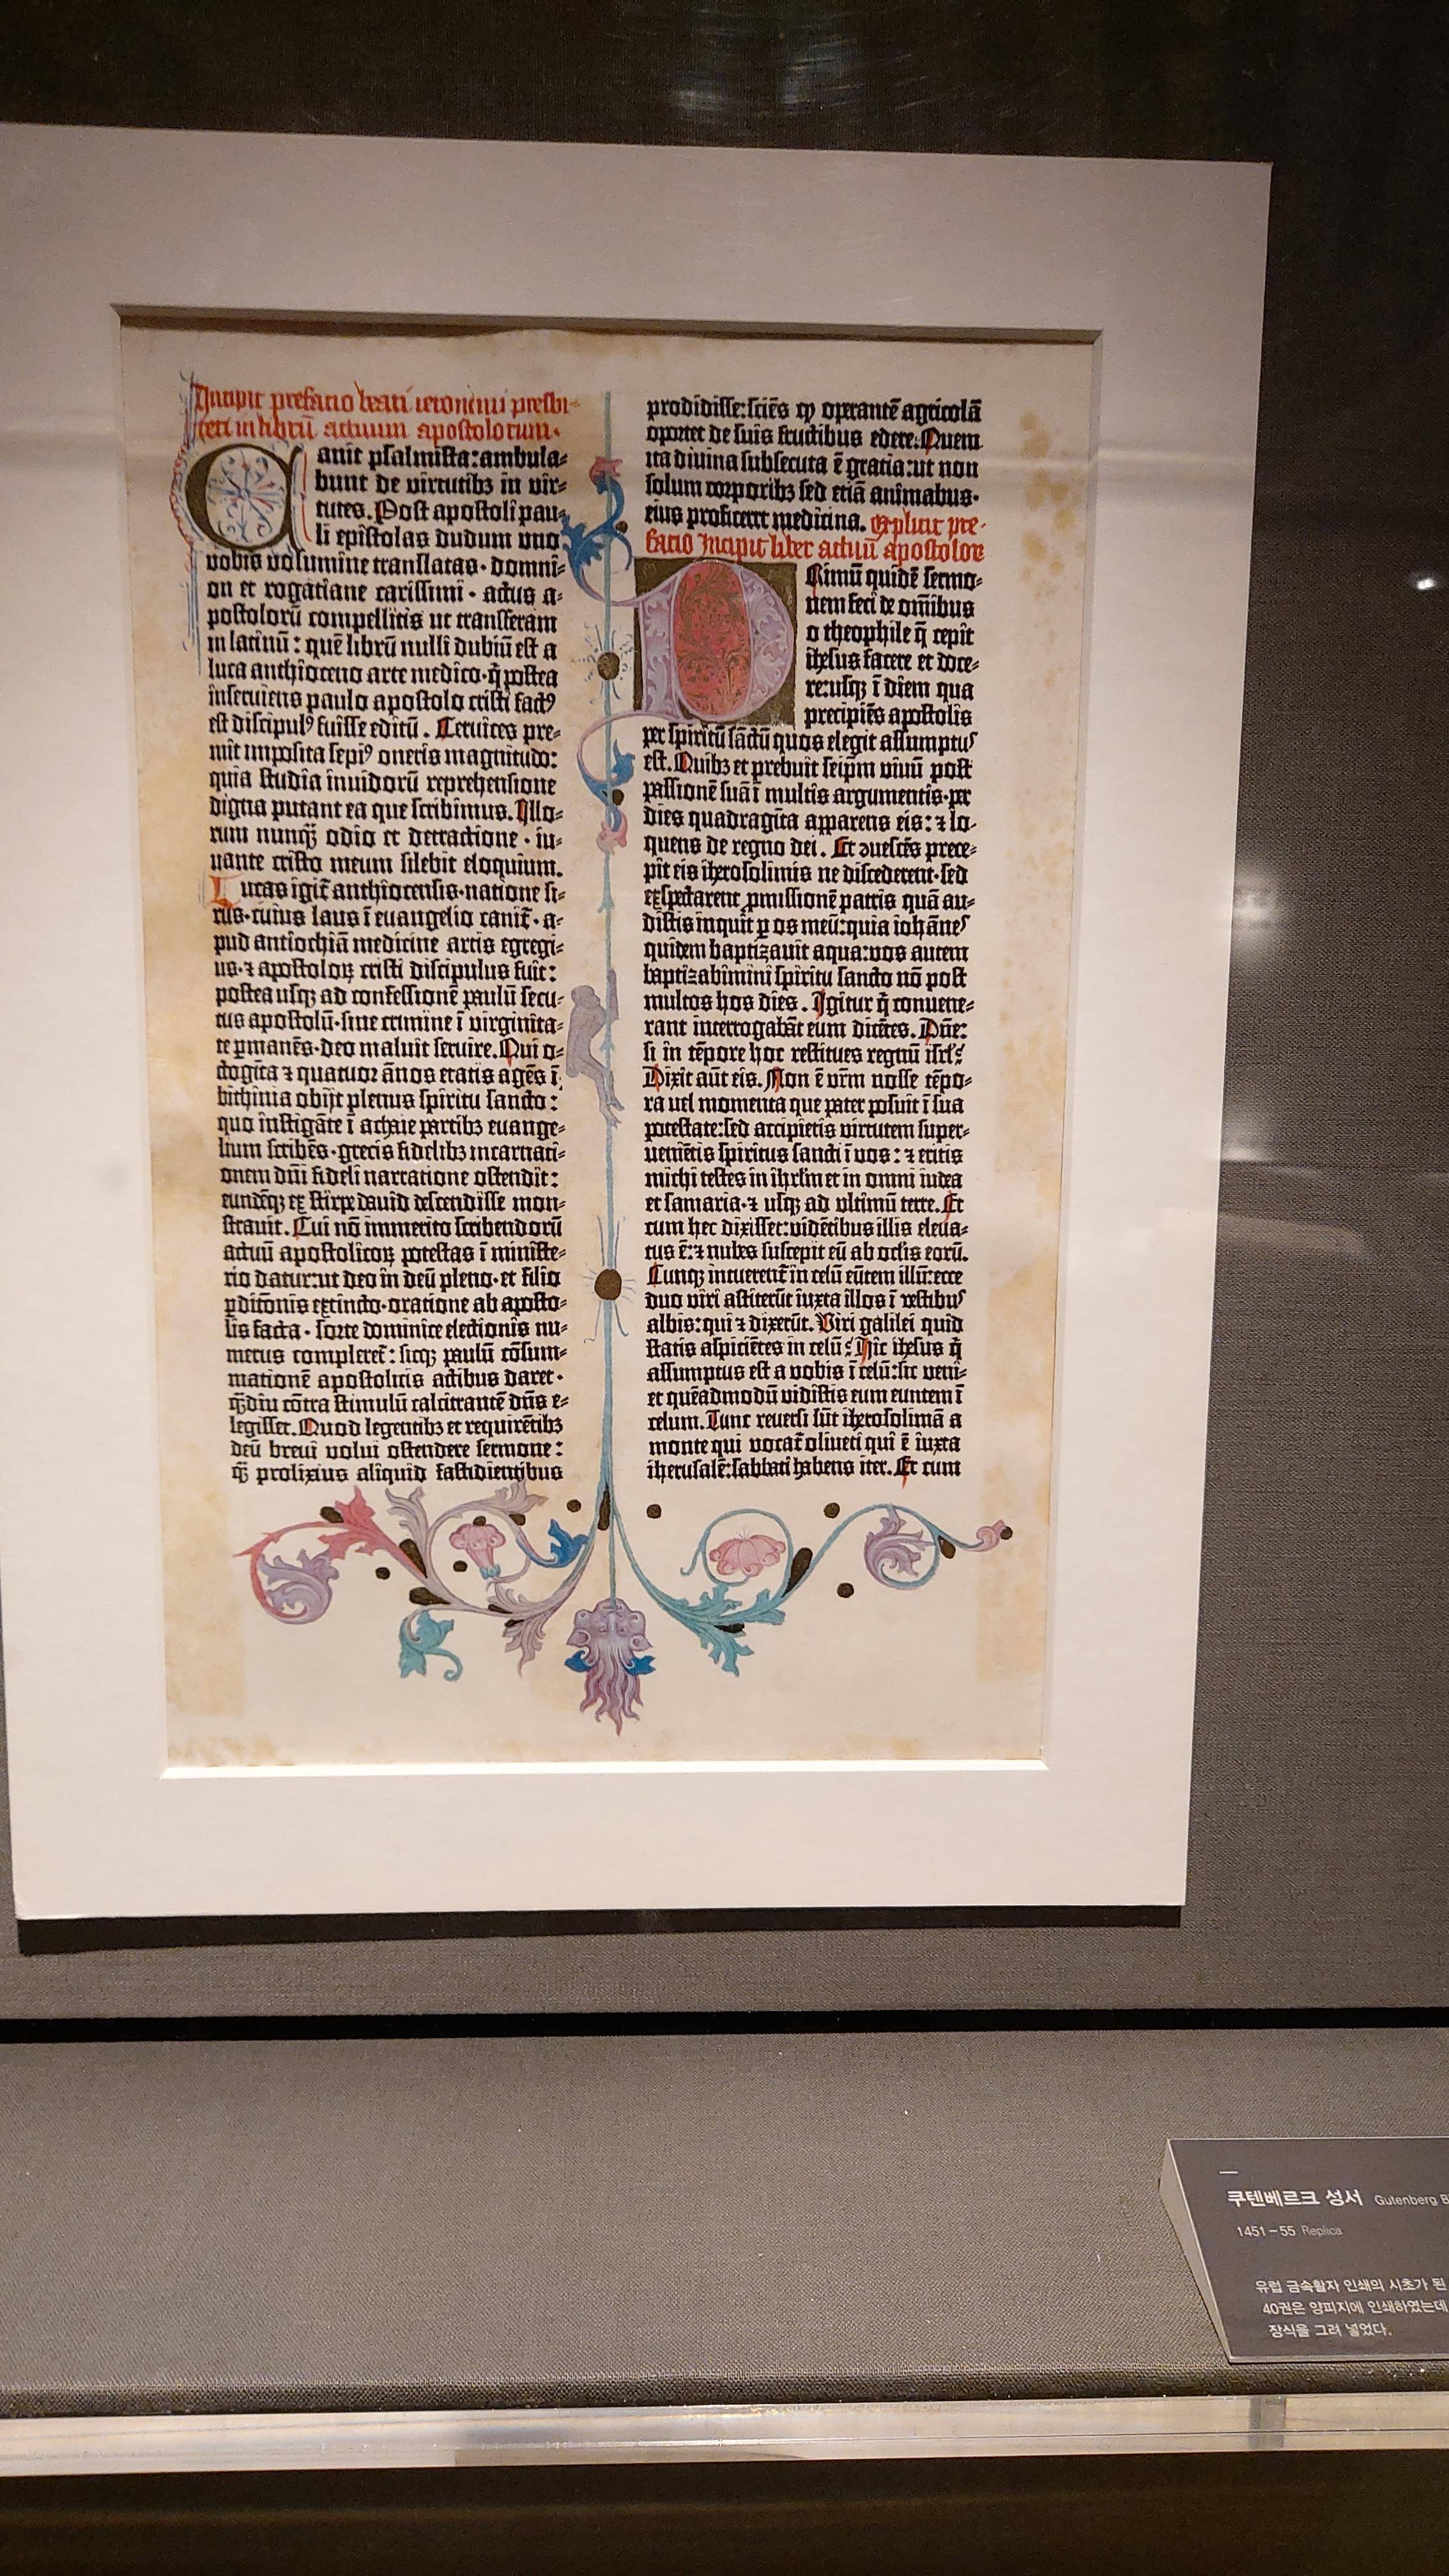 Incipit prefatio beati ieronimi presbi-
teri in librū actuum apostolorum.
Canit psalmista: ambula-
bunt de virtutibꝫ in vir-
tutes. Post apostoli pau-
li epistolas dudum uno
vobis volumine translatas · domni-
on et rogatiane carissimi · actus a-
postolorū compellitis ut transferam
in latinū : quē librū nulli dubiū est a
luca anthioceno arte medico · q̄ postea
inserviens paulo apostolo cristi factꝰ
est discipulꝰ fuisse editū . Cervices pre-
mit imposita sepiꝰ oneris magnitudo:
quia studia invidorū reprehensione
digna putant ea que scribimus. Illo-
rum nunq̄ odio et detractione · iu-
vante cristo meum silebit eloquium.
Lucas igit̄ anthiocensis · natione si-
rus · cuius laus ī euangelio canit̄ · a-
pud antiochiā medicine artis egregi-
us · ⁊ apostoloꝝ cristi discipulus fuit:
postea usqꝫ ad confessionē paulū secu-
tus apostolū · sine crimine ī virginita-
te ꝑmanēs · deo maluit servire. Qui o-
ctogīta ⁊ quatuor ānos etatis agēs ī
bithinia obijt plenus spiritu sancto:
quo instigāte ī achaie partibꝫ euange-
lium scribēs · grecis fidelibꝫ incarnati-
onem dn̄i fideli narratione ostendit:
eundēqꝫ ex stirpe dauid descendisse mon-
stravit. Cui nō immerito scribendorū
actuū apostolicoꝝ potestas ī ministe-
rio datur: ut deo in deū pleno · et filio
ꝑditōnis extincto · oratione ab aposto-
lis facta · sorte dominice electionis nu-
merus compleret̄ : sicqꝫ paulū cōsum-
mationē apostolicis actibus daret ·
q̄diu cōtra stimulū calcitrantē dn̄s e-
legisset. Quod legentibꝫ et requirētibꝫ
deū breui volui ostendere sermone :
q̄ prolixius aliquid fastidientibus
prodidisse: sciēs ꝙ operantē agricolā
oportet de suis fructibus edere. Quem
ita divina subsecuta ē gratia: ut non
solum corporibꝫ sed etiā animabus ·
eius proficeret medicina. Explicit pre-
facio Incipit liber actuū apostoloꝝ
Primū quidē sermo-
nem feci de om̄ibus
o theophile q̄ cepit
ihesus facere et doce-
re: usqꝫ ī diem qua
precipiēs apostolis
per spiritū sāctū quos elegit assumptus
est. Quibꝫ et prebuit seip̄m vivū post
passionē suā ī multis argumentis · per
dies quadragīta apparens eis: ⁊ lo-
quens de regno dei . Et ꝯuescēs prece-
pit eis iherosolimis ne discederent · sed
expectarent ꝓmissionē patris quā au-
distis inquit ꝑ os meū: quia iohānes
quidem baptizavit aqua: vos autem
baptizabimini spiritu sancto nō post
multos hos dies . Igitur q̄ convene-
rant interrogabāt eum dicētes. Dn̄e:
si in tēpore hoc restitues regnū isrl̄?
Dixit aūt eis. Non ē vr̄m nosse tēpo-
ra vel momenta que pater posuit ī sua
potestate: sed accipietis virtutem super-
venietis spiritus sancti ī vos: ⁊ eritis
michi testes in ihrlm̄ et in omni iudea
et samaria · ⁊ usqꝫ ad ultimū terre. Et
cum hec dixisset: vidētibus illis eleva-
tus ē: ⁊ nubes suscepit eū ab oclis eorū.
Cunqꝫ intuerent̄ in celū eūtem illū: ecce
duo viri astiterūt iuxta illos ī vestibus
albis: qui ⁊ dixerūt. Viri galilei quid
statis aspiciētes in celū? Hic ihesus q̄
assumptus est a vobis ī celū: sic veni-
et quēadmodū vidistis eum euntem ī
celum. Tunc reversi sūt iherosolimā a
monte qui vocat̄ oliueti qui ē iuxta
iherusalē: sabbati habens iter. Et cum
쿠텐베르크 성서 Gutenberg B
1451–55 Replica
유럽 금속활자 인쇄의 시초가 된
40권은 양피지에 인쇄하였는데
장식을 그려 넣었다.